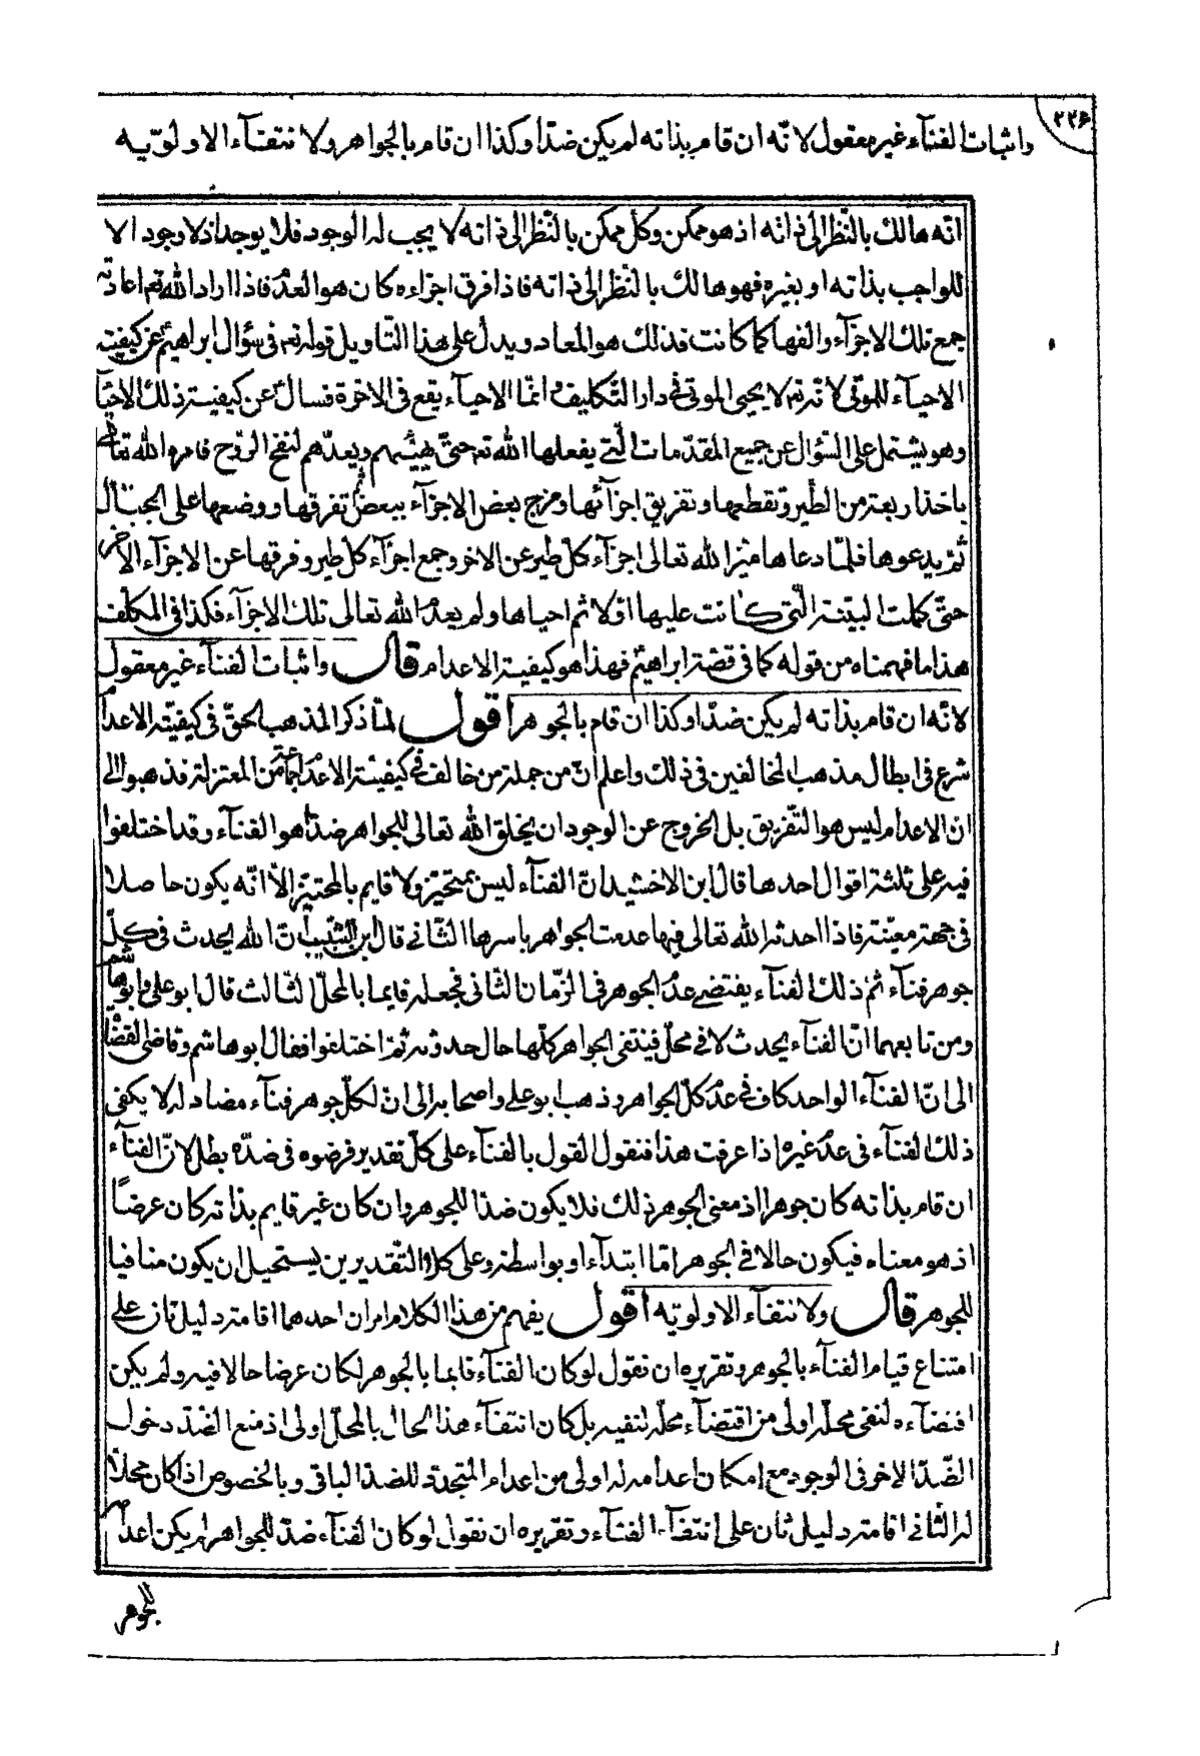 ٢٢۶
واثبات الفنآء غير معقول لانّه ان قام بذاته لم يكن ضدّا وكذا ان قام بالجواهر ولانتفآء الاولويّه
انّه هالك بالنّظر الى ذاته اذ هو ممكن وكلّ ممكن بالنّظر الى ذاته لا يجب له الوجود فلا يوجد اذ لا وجود الا
للواجب بذاته او بغيره فهو هالك بالنّظر الى ذاته فاذا فرق اجزاءه كان هو العدم فاذا اراد الله تعم اعادته
جمع تلك الاجزآء والفها كما كانت فذلك هو المعاد ويدل على هذا التّاويل قوله تعم فى سؤال ابراهيم عن كيفيّته
الاحيآء للموتى لانّه تعم لا يحيى الموتى فى دار التّكليف وانمّا الاحيآء يقع فى الاخرة فسال عن كيفيّة ذلك الاحيآء
وهو يشتمل على السّؤال عن جميع المقدّمات الّتى يفعلها الله تعم حتّى يهيّئهم ويعدّهم لنفخ الرّوح فامره الله تعالى
باخذ اربعة من الطّير وتقطيعها وتفريق اجزآئها ومزج بعض الاجزآء ببعض ثم تفرقها ووضعها على الجبال
ثم يدعوها فلمّا دعاها ميّز الله تعالى اجزآء كلّ طير عن الاخر وجمع اجزآء كلّ طير وفرقها عن الاجزآء الاخر
حتّى كملت البنية الّتى كانت عليها اوّلا ثم احياها ولم يعدم الله تعالى تلك الاجزآء فكذا فى المكلّف
هذا ما فهمناه من قوله كما فى قصّة ابراهيم فهذا هو كيفيّة الاعدام قال واثبات الفنآء غير معقول
لانّه ان قام بذاته لم يكن ضدّا وكذا ان قام بالجوهر اقول لمّا ذكر المذهب الحقّ فى كيفيّة الاعدام
شرع فى ابطال مذهب المخالفين فى ذلك واعلم انّ من جملة من خالف فى كيفيّة الاعدام جماعة من المعتزلة فذهبوا الى
ان الاعدام ليس هو التّفريق بل الخروج عن الوجود ان يخلق الله تعالى للجواهر ضدّا هو الفنآء وقد اختلفوا
فيه على ثلثة اقوال احدها قال ابن الاخشيد انّ الفنآء ليس بمتحيّز ولا قايم بالمتحيّز الاّ انّه يكون حاصلا
فى جهة معيّنة فاذا احدثه الله تعالى فيها عدمت الجواهر باسرها الثّانى قال ابن الشّبيب انّ الله يحدث فى كلّ
جوهر فنآء ثم ذلك الفنآء يقتضى عدم الجوهر فى الزّمان الثّانى فجعله قايما بالمحلّ الثّالث قال ابو على وابو هاشم
ومن تابعهما انّ الفنآء يحدث لا فى محلّ فينتفى الجواهر كلّها حال حدوثه ثم اختلفوا فقال ابو هاشم وقاضى القضاة
الى انّ الفنآء الواحد كاف فى عدم كلّ الجواهر وذهب ابو على واصحابه الى ان لكلّ جوهر فنآء مضاد له لا يكفى
ذلك الفنآء فى عدم غيره اذا عرفت هذا فنقول القول بالفنآء على كلّ تقدير فرضوه فى ضدّه بطل لانّ الفنآء
ان قام بذاته كان جوهرا اذ معنى الجوهر ذلك فلا يكون ضدّا للجوهر وان كان غير قايم بذاته كان عرضاً
اذ هو معناه فيكون حالا فى الجوهر امّا ابتدآء او بواسطة وعلى كلا التّقديرين يستحيل ان يكون منافيا
للجوهر قال ولانتفآء الاولويّه اقول يفهم من هذا الكلام امران احدهما اقامة دليل ثان على
امتناع قيام الفنآء بالجوهر وتقريره ان نقول لو كان الفنآء قايما بالجوهر لكان عرضا حالا فيه ولم يكن
اقتضآءه لنفى محلّه اولى من اقتضآء محلّه لنفيه بل كان انتفآء هذا الحال بالمحلّ اولى اذ منع الضّد دخول
الضّدّ الاخر فى الوجود مع امكان اعدامه له اولى من اعدام المتجدّد للضدّ الباقى وبالخصوص اذا كان محلاّ
له الثّانى اقامة دليل ثان على انتفآء الفنآء وتقريره ان نقول لو كان الفنآء ضدّ للجواهر لم يكن اعدامه
للجوهر